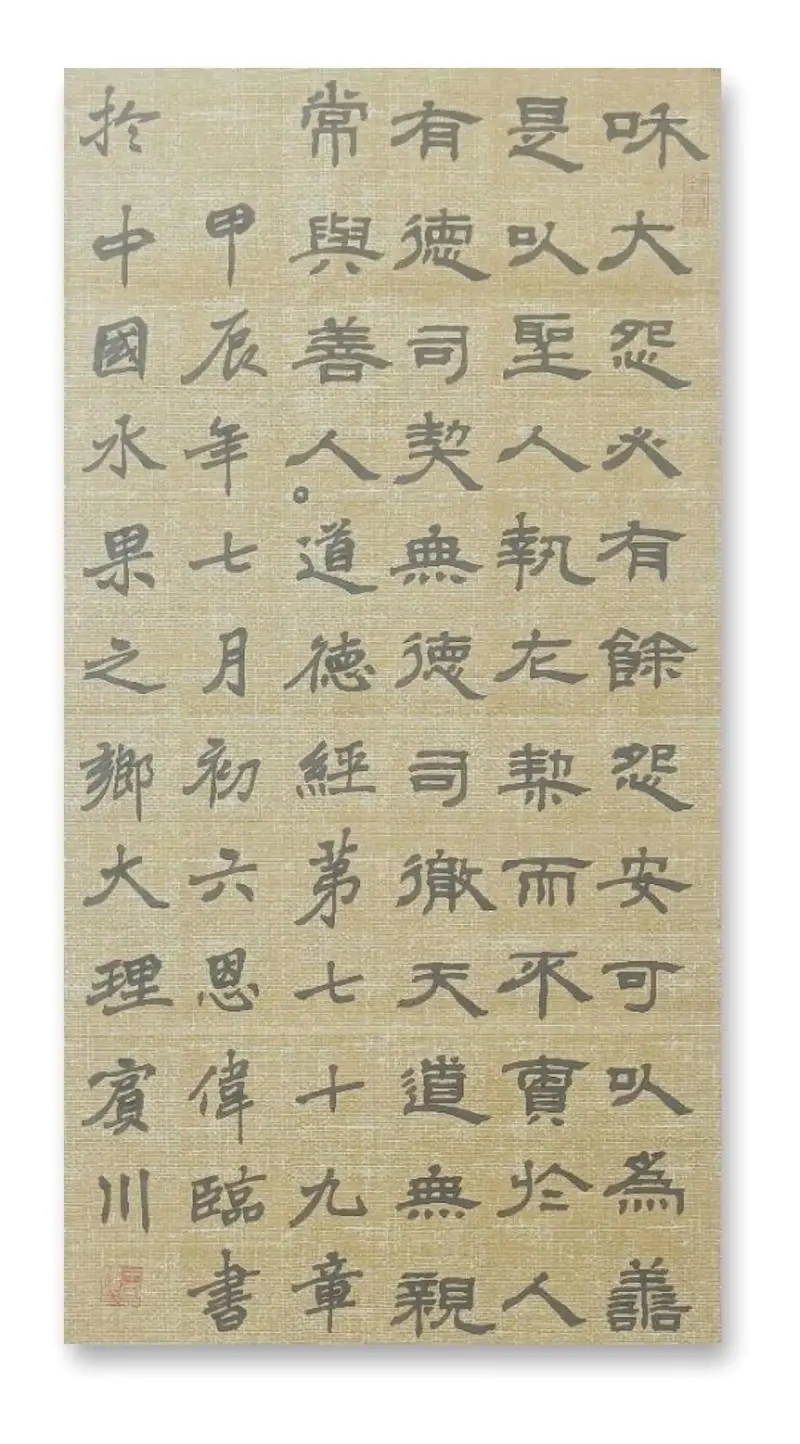 咊大怨必有餘怨安可以為譱
是以聖人執左栔而不責於人
有德司契無德司徹天道無親
常與善人。道德經第七十九章
甲辰年七月初六恩偉臨書
於中國水果之鄉大理賓川